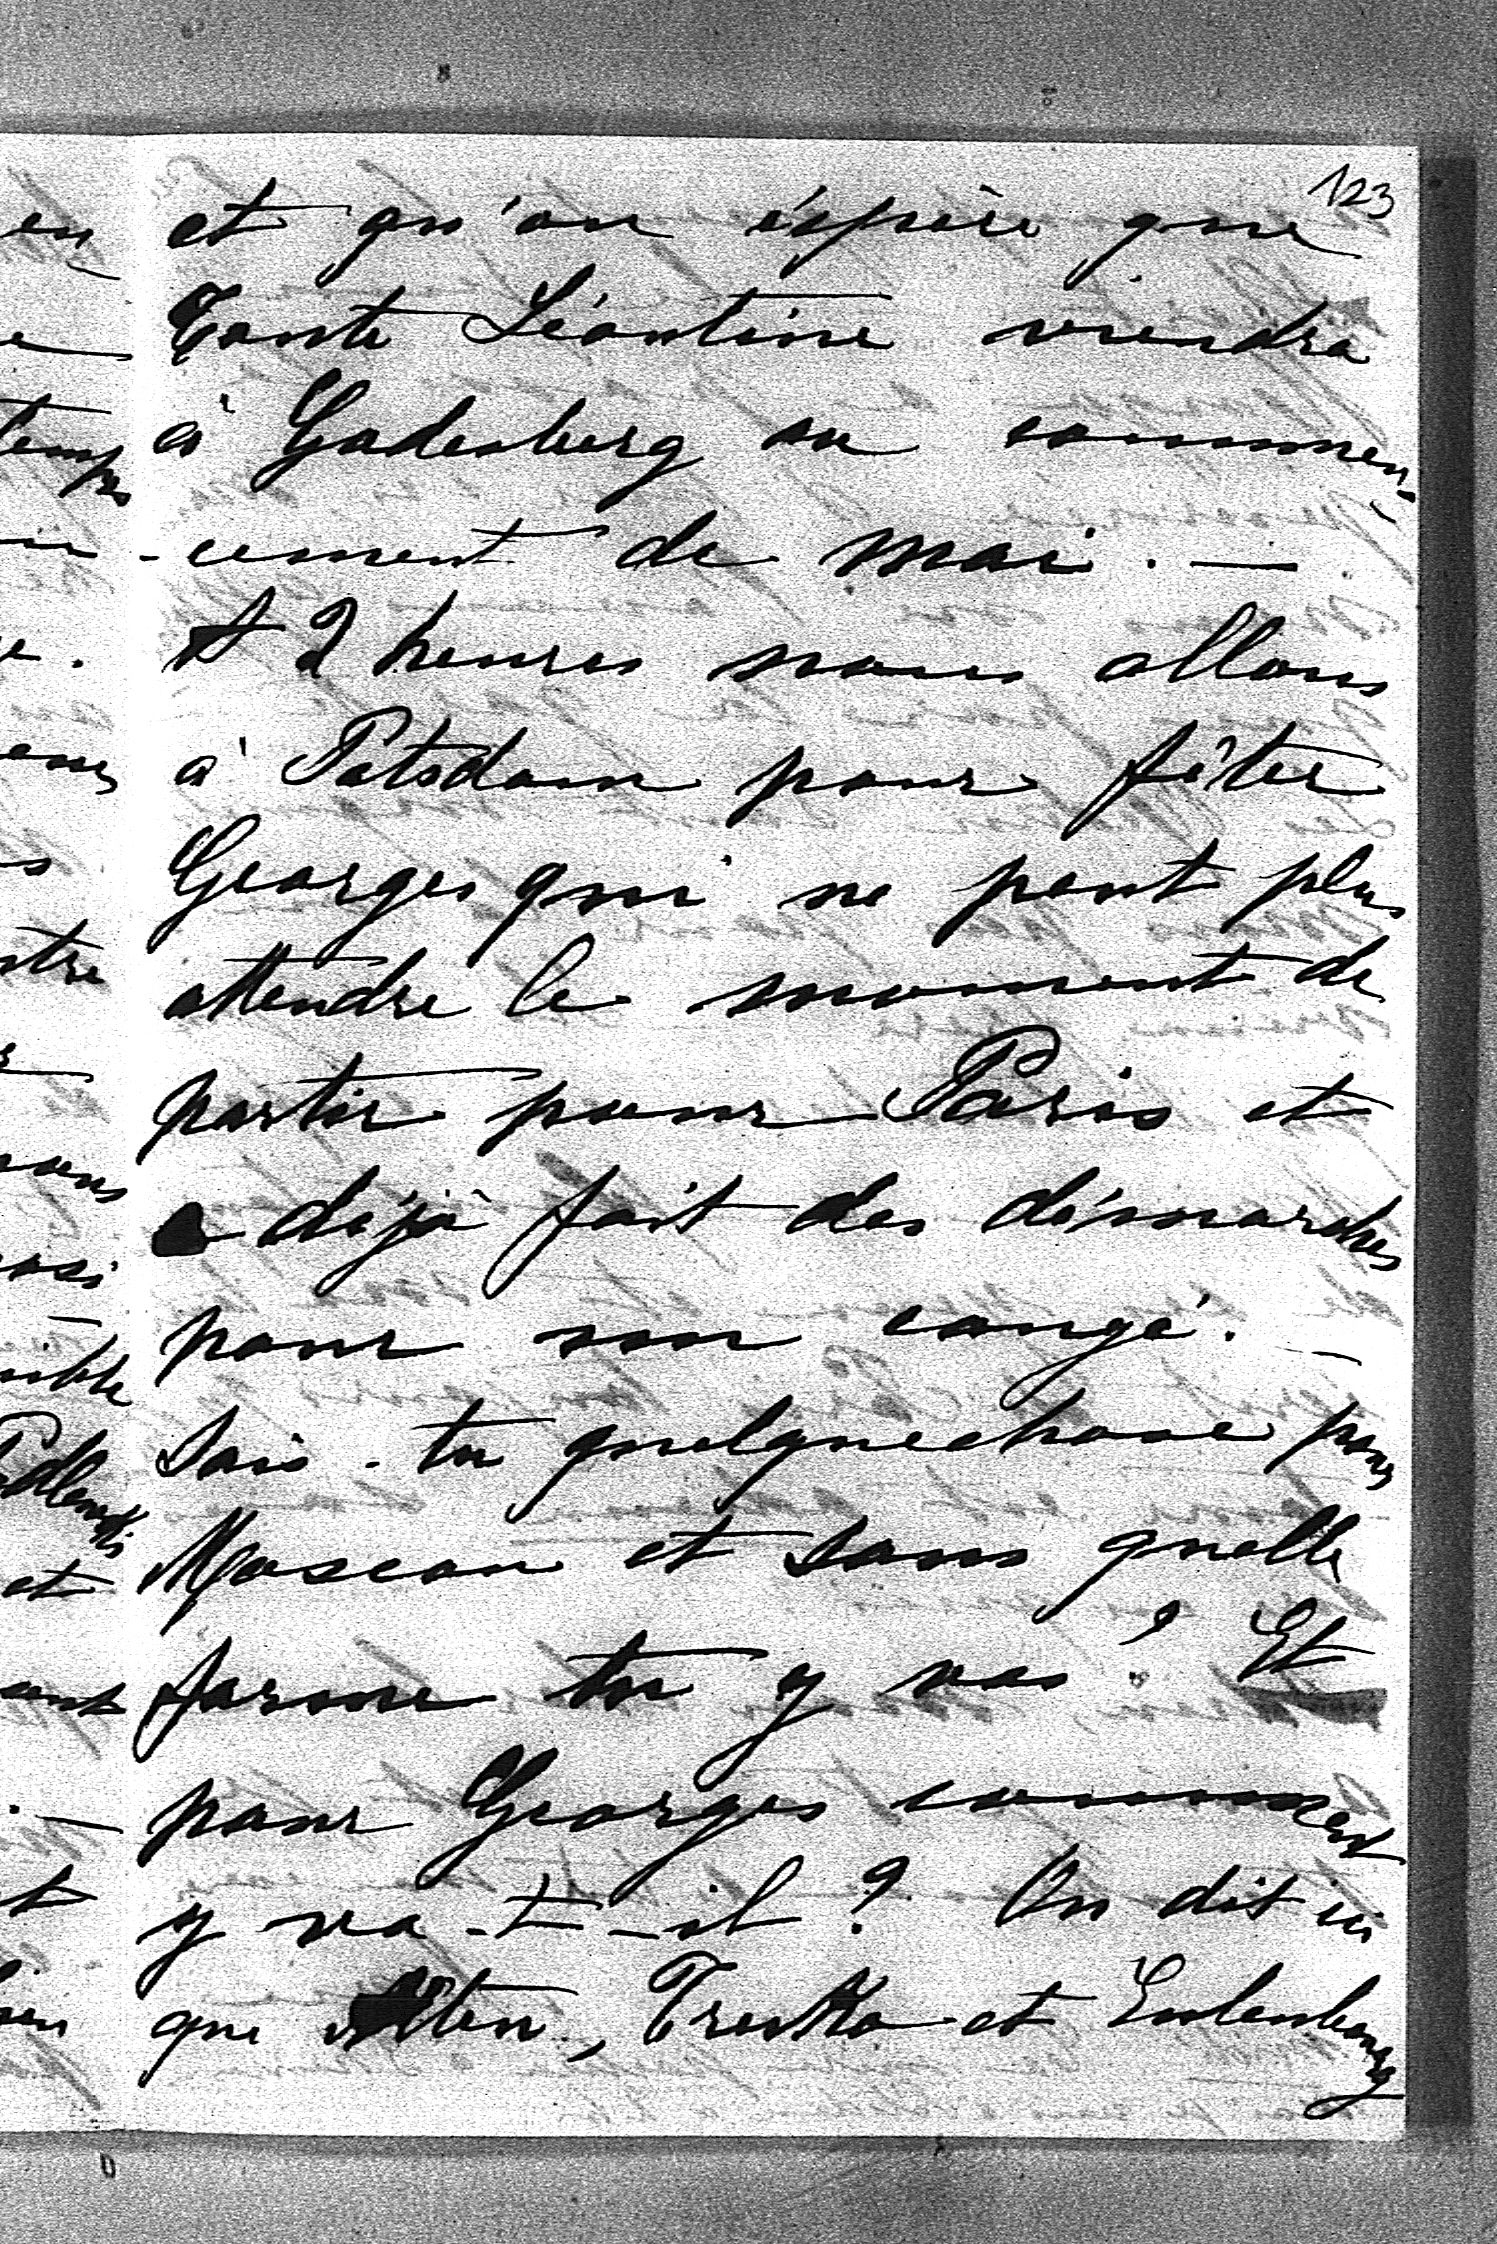 123
et qu'on éspère que
Tante Léontine viendra
à Godesberg au commen-
-cement de mai. —
A 2 heures nous allons
à Potsdam pour fêter
Georges qui ne peut plus
attendre le moment de
partir pour Paris et
a déjà fait des démarches
pour son congé. —
Sais-tu quelquechose pour
Moscou et sous quelle
forme tu y vas? Et
pour Georges comment
y va-t-il? On dit ici
que Treskow et Eulenbourg